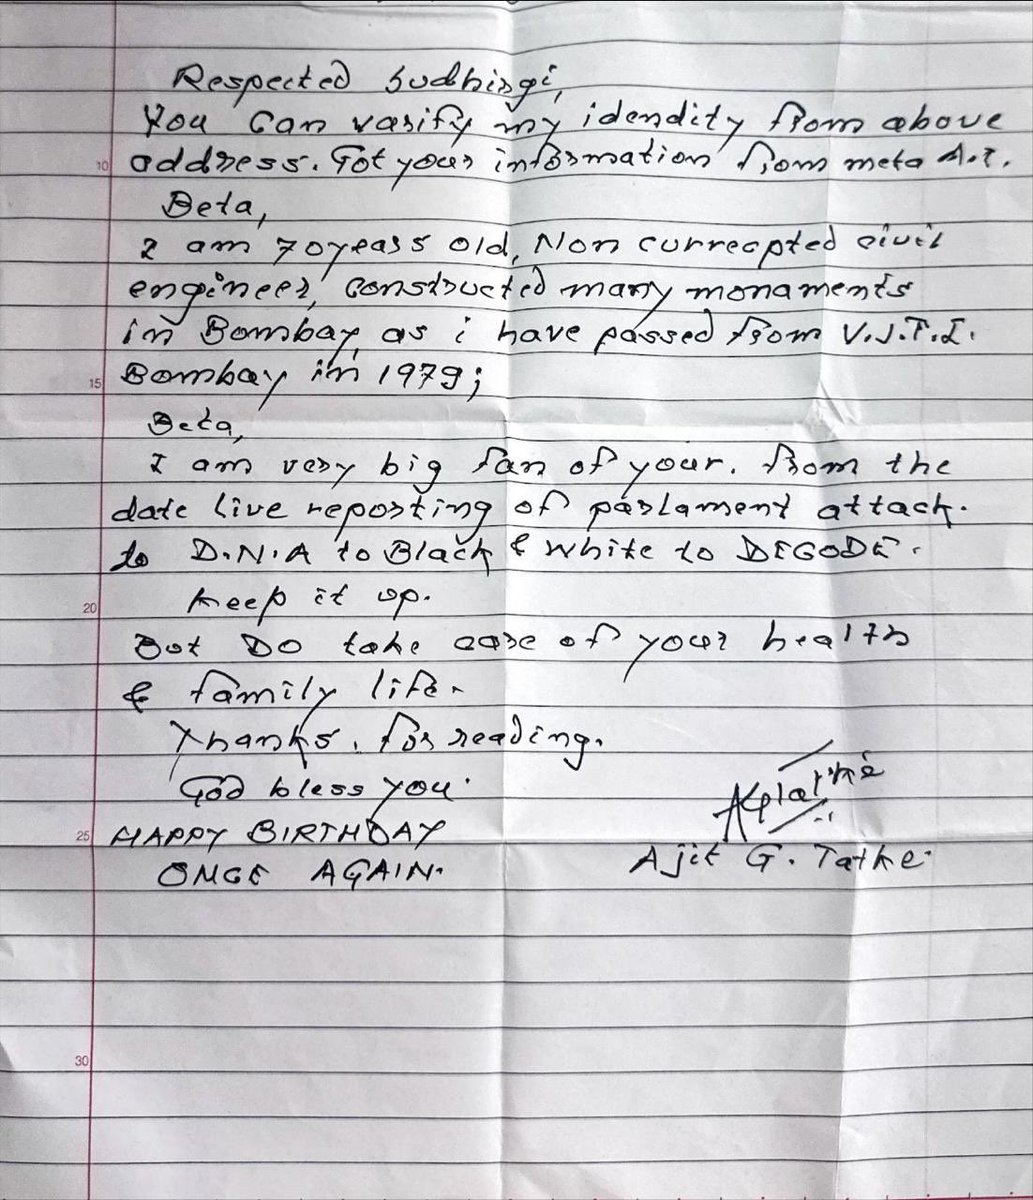 Respected Sudhirgi,
You can varify my idendity from above
10 address. Got your information from meta A.I.
Beta,
I am 70 years old, Non currecpted civil
engineer, constructed many monaments
in Bombay, as i have passed from V.J.T.I.
15 Bombay in 1979;
Beta,
I am very big fan of your. from the
date live reporting of parlament attack.
to D.N.A to Black & White to DECODE.
20 Keep it up.
But DO take care of your health
& family life.
Thanks. for reading.
God bless you.
25 HAPPY BIRTHDAY
ONCE AGAIN.
Ajit G. Tatke.
30